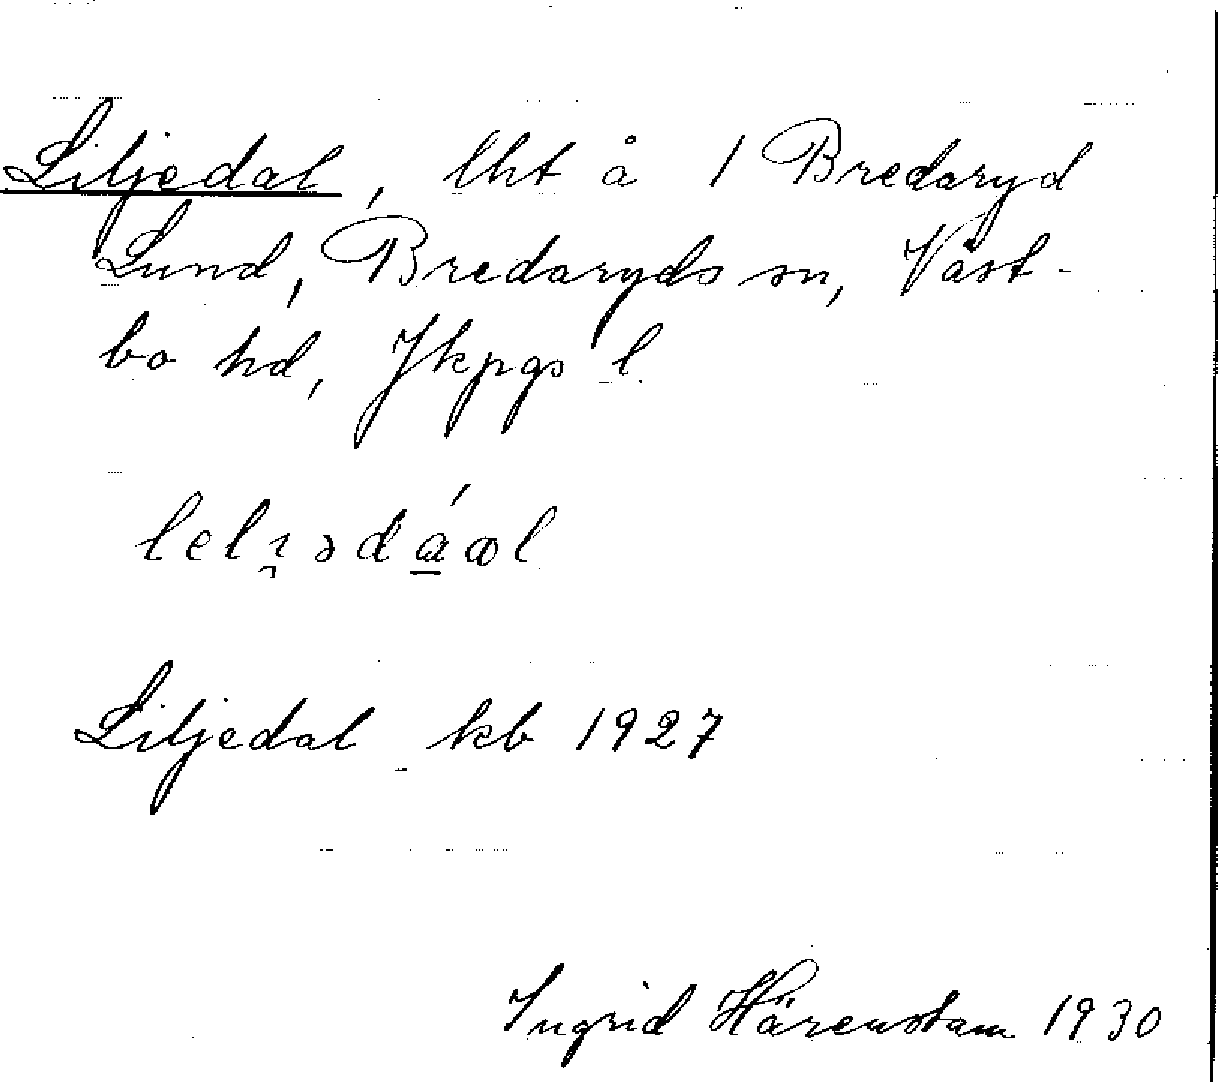 Liljedal, lht å 1 Bredaryd
Lund, Bredaryds sn, Väst-
bo hd, Jkpgs l.
lelı̯ədá̲œl
Liljedal kb 1927
Ingrid Härenstam 1930